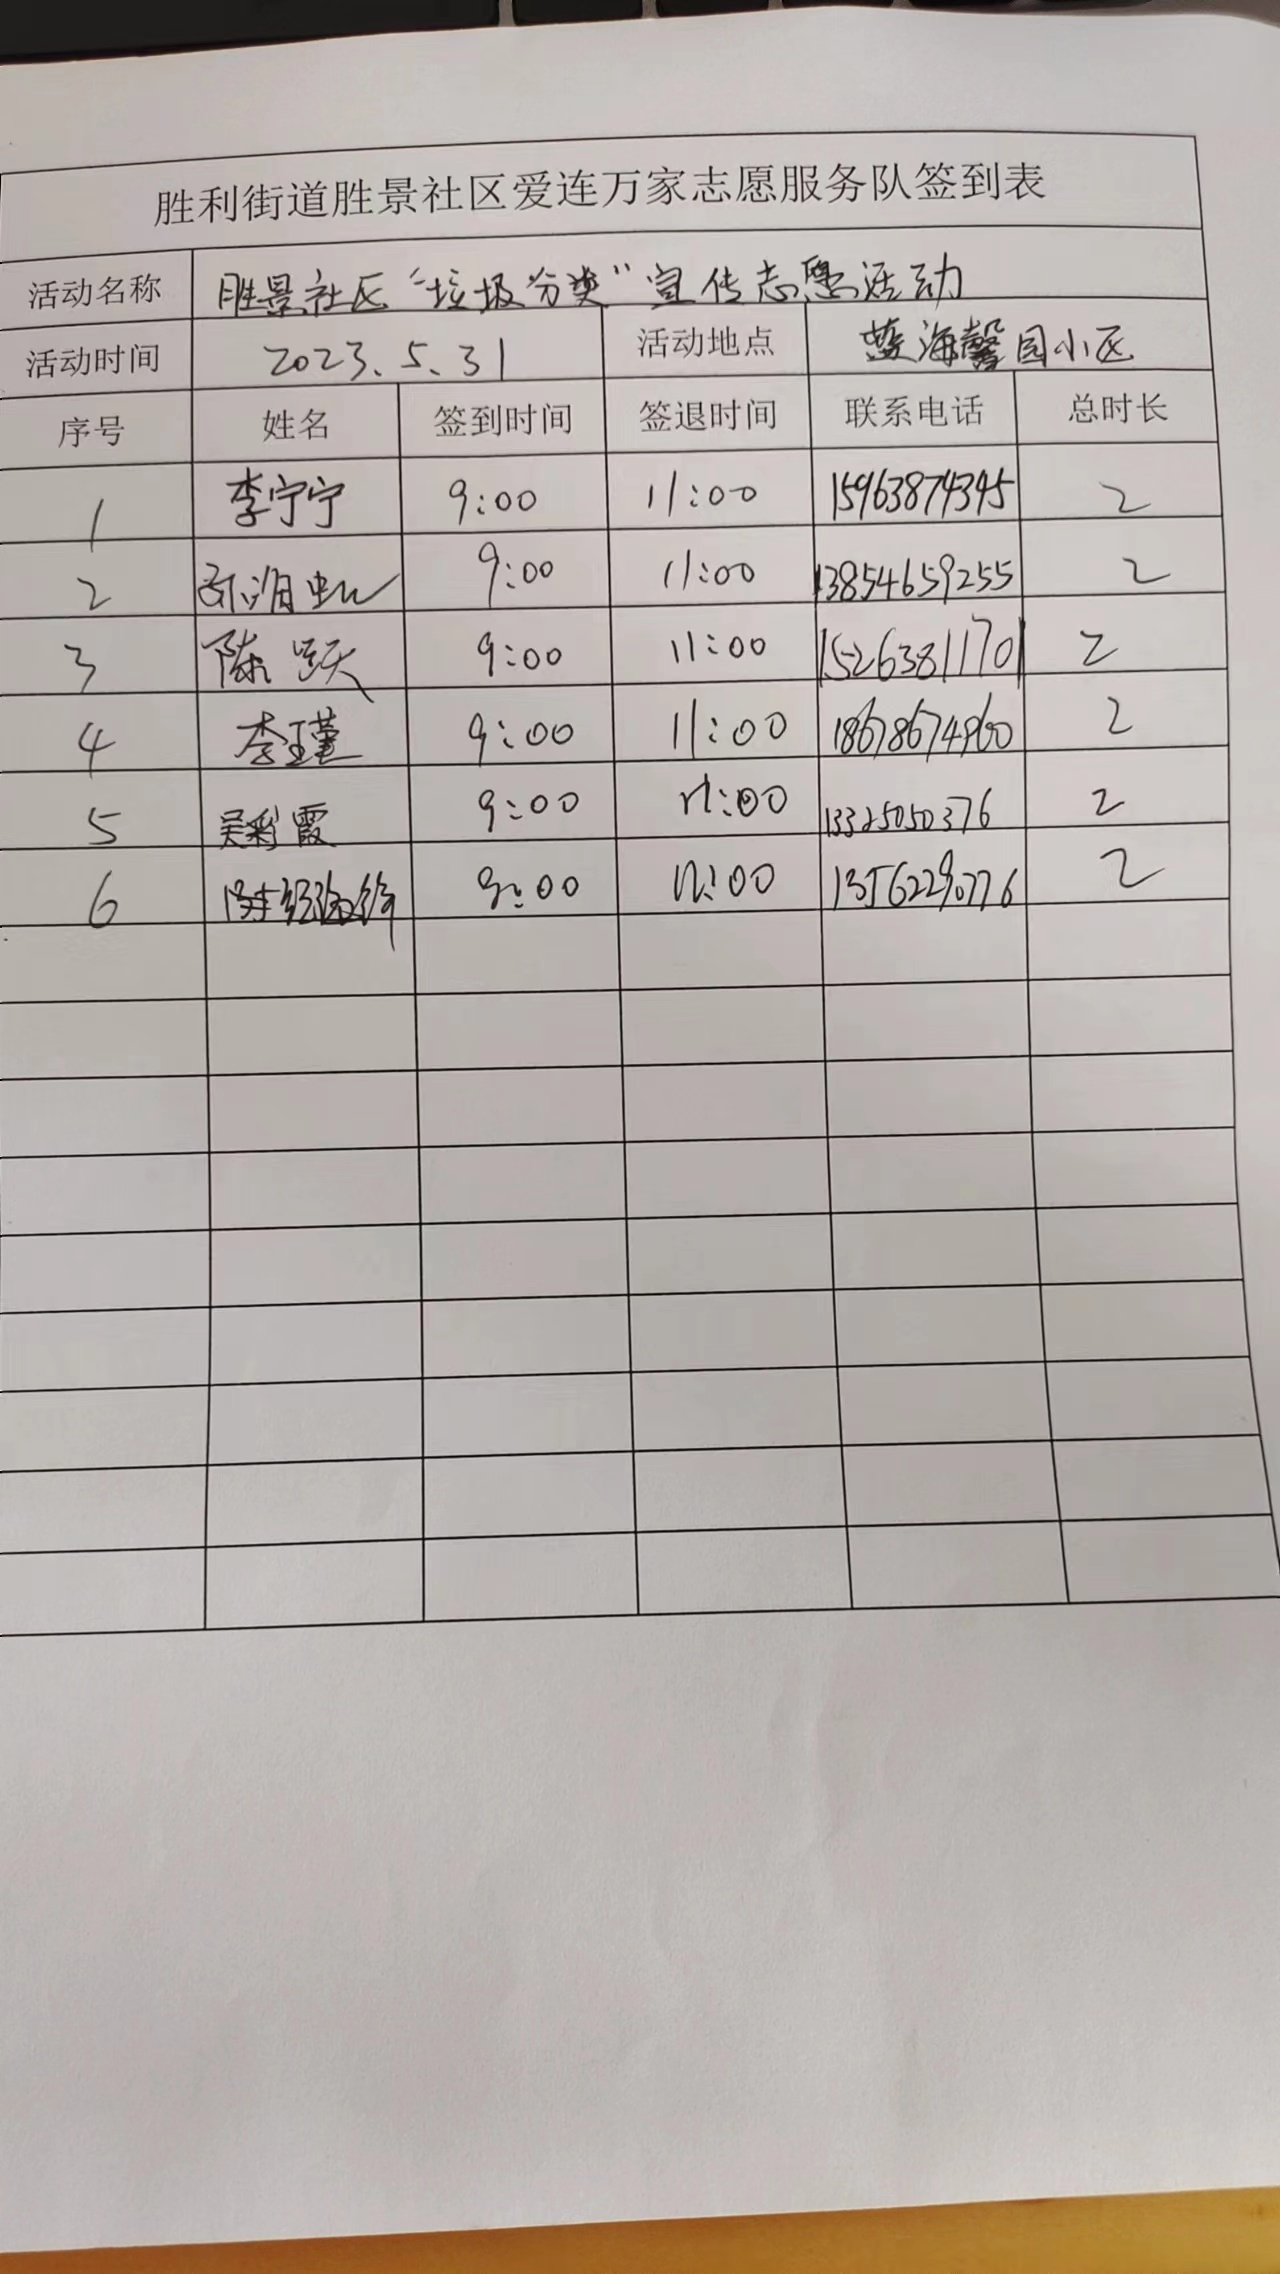 胜利街道胜景社区爱连万家志愿服务队签到表
活动名称 胜景社区“垃圾分类”宣传志愿活动
活动时间 2023.5.31 活动地点 蓝海馨园小区
序号 姓名 签到时间 签退时间 联系电话 总时长
1 李宁宁 9:00 11:00 15963874345 2
2 9:00 11:00 13854659255 2
3 陈跃 9:00 11:00 15263811701 2
4 李瑾 9:00 11:00 18678674960 2
5 吴彩霞 9:00 11:00 13325050376 2
6 9:00 :00 13562290776 2